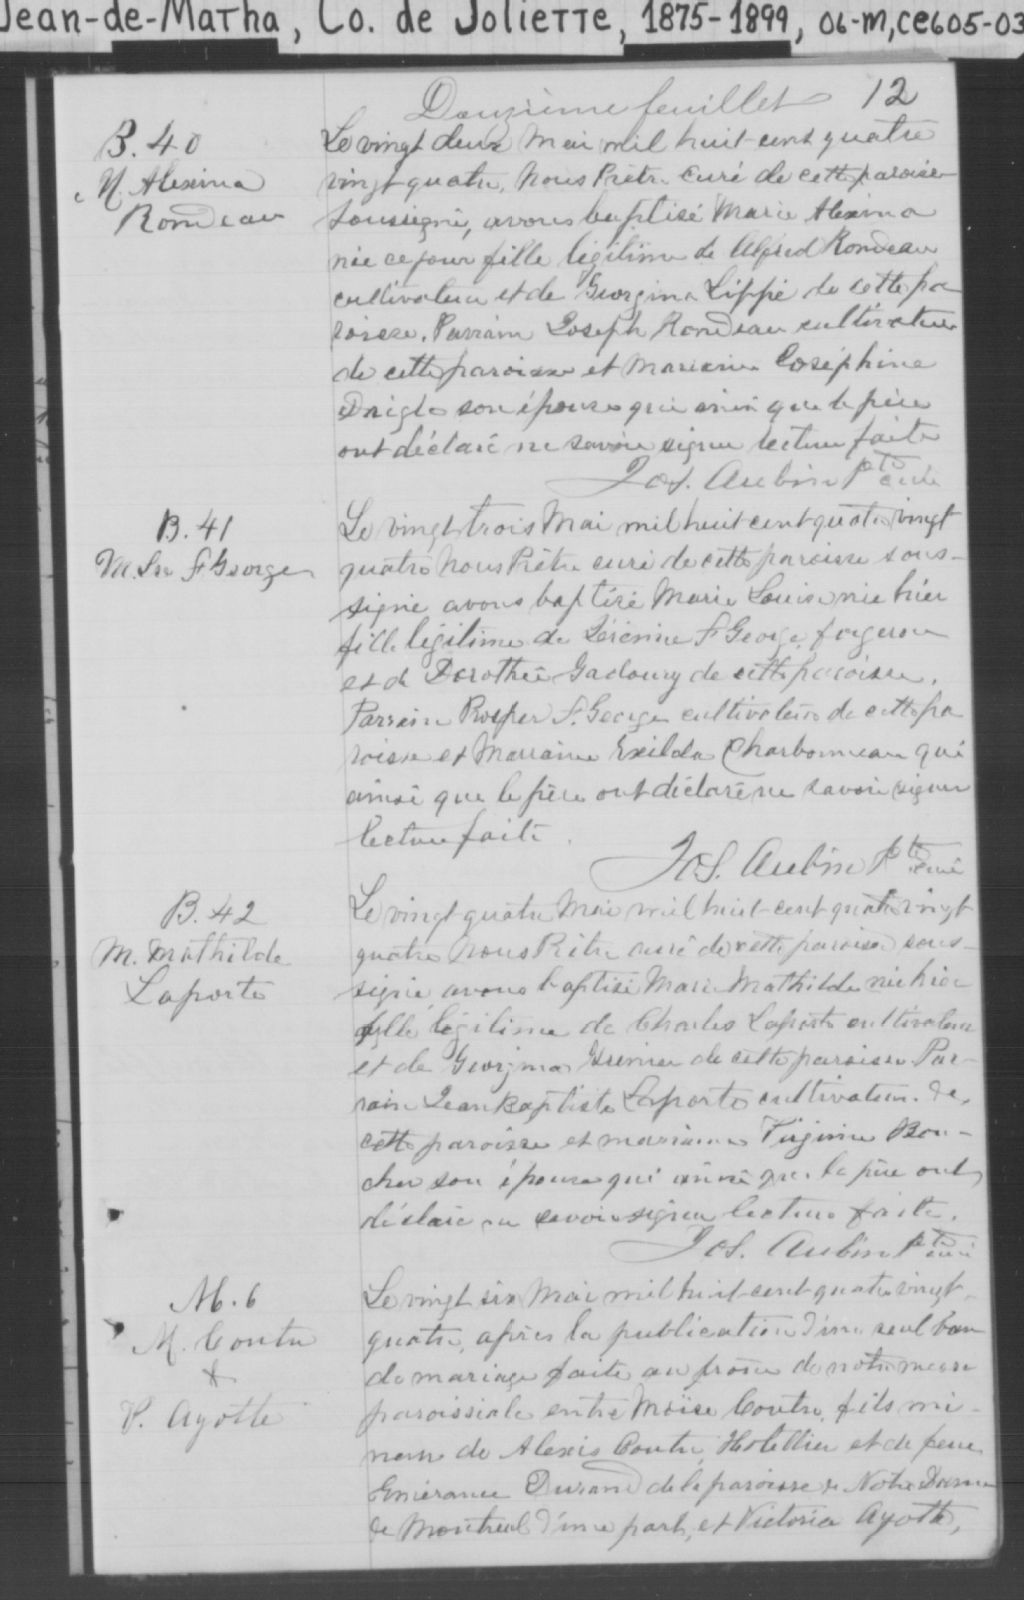 Jean-de-Matha, Co. de Joliette, 1875-1899, 06-M, CE605-03
Douzième feuillet 12
B. 40
M. Alexina
Rondeau
Le vingt deux Mai mil huit cent quatre
vingt quatre, Nous Prêtre Curé de cette paroisse
soussigné, avons baptisé Marie Alexina
née ce jour fille légitime de Alfred Rondeau
cultivateur et de Georgina Lippé de cette pa
roisse. Parrain Joseph Rondeau cultivateur
de cette paroisse et Marraine Joséphine
son épouse qui ainsi que le père
ont déclaré ne savoir signer lecture faite
Jos. Aubin Ptre curé
B. 41
M. Lse St George
Le vingt trois Mai mil huit cent quatre vingt
quatre Nous Prêtre curé de cette paroisse sous-
signé avons baptisé Marie Louise née hier
fille légitime de St George forgeron
et de Dorothée Gadoury de cette paroisse.
Parrain Prosper St George cultivateur de cette pa
roisse et Marraine Exilda Charbonneau qui
ainsi que le père ont déclaré ne savoir signer
lecture faite.
Jos. Aubin Ptre curé
B. 42
M. Mathilde
Laporte
Le vingt quatre Mai mil huit cent quatre vingt
quatre Nous Prêtre curé de cette paroisse sous-
signé, avons baptisé Marie Mathilde née hier
fille légitime de Charles Laporte cultivateur
et de Georgina Grenier de cette paroisse. Par-
rain Jean Baptiste Laporte cultivateur de
cette paroisse et marraine Virginie Bou-
cher son épouse qui ainsi que le père ont
déclaré ne savoir signer lecture faite.
Jos. Aubin Ptre curé
M. 6
M. Coutu
&
V. Ayotte
Le vingt six Mai mil huit cent quatre vingt
quatre, après la publication d'un seul ban
de mariage faite au prône de notre messe
paroissiale entre Moïse Coutu, fils mi-
neur de Alexis Coutu, Hotellier et de feue
Emérance Durand de la paroisse de Notre Dame
de Montréal d'une part, et Victoria Ayotte,